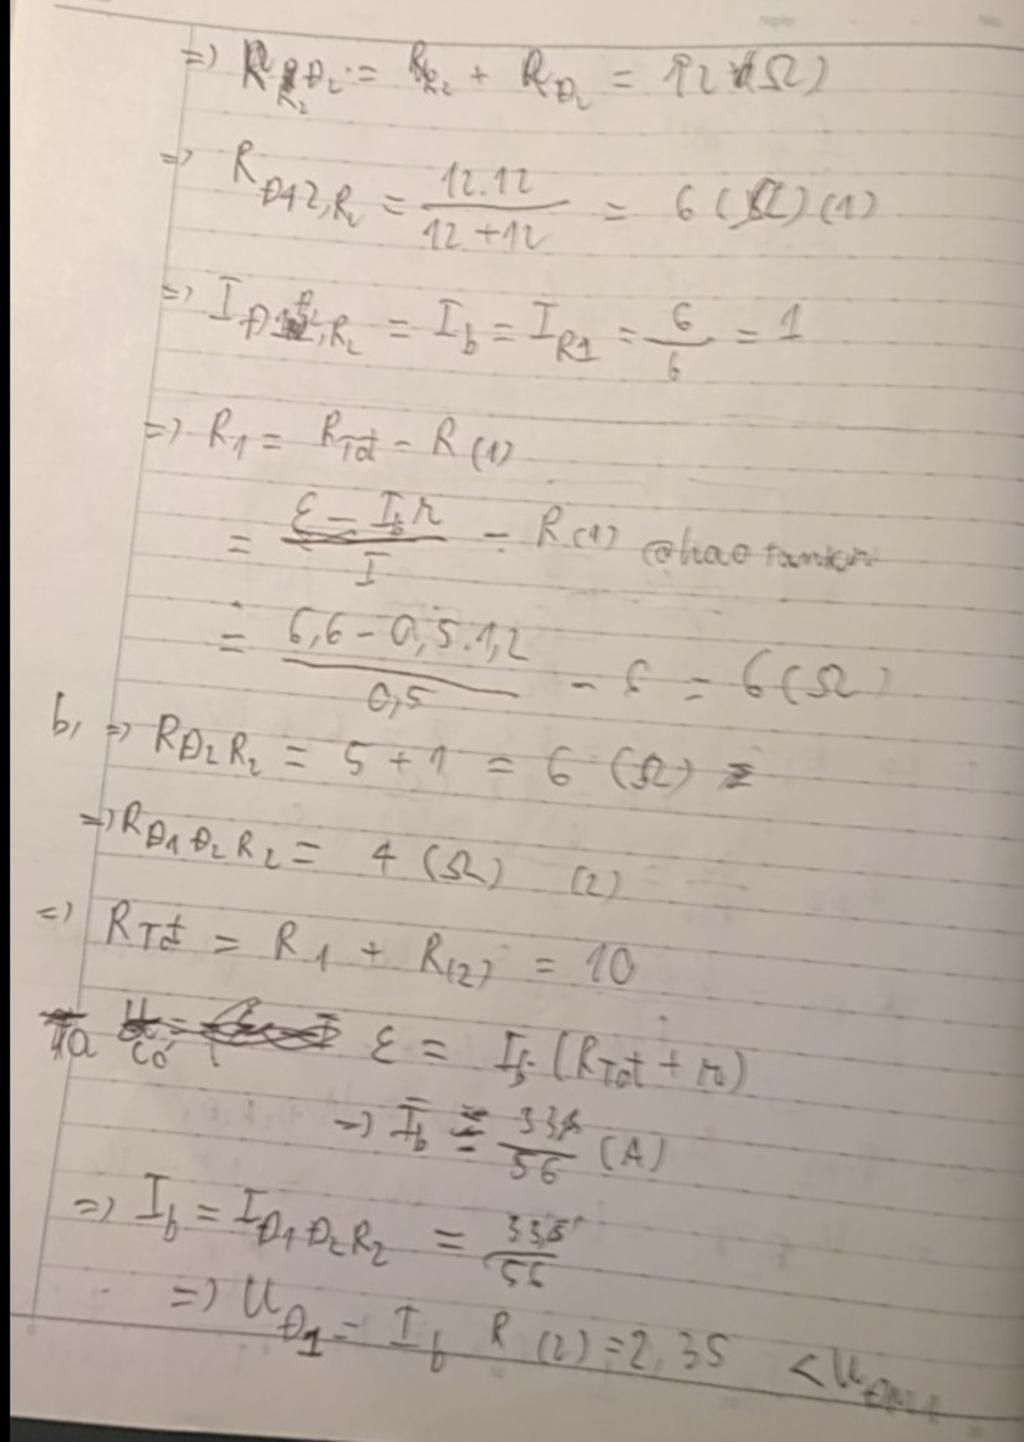 => R_{R_2Đ_2} = R_{R_2} + R_{Đ_2} = 12 (Ω)
=> R_{Đ12,R_2} = \frac{12.12}{12+12} = 6 (Ω) (1)
=> I_{Đ1Đ2,R_2} = I_b = I_{R1} = \frac{6}{6} = 1
=> R_1 = R_{Tđ} - R_{(1)}
= \frac{ε - I_b r}{I} - R_{(1)}
= \frac{6,6 - 0,5.1,2}{0,5} - 6 = 6 (Ω)
b, => R_{Đ_2R_2} = 5 + 1 = 6 (Ω)
=> R_{Đ1Đ_2R_2} = 4 (Ω) (2)
=> R_{Tđ} = R_1 + R_{(2)} = 10
Ta có ε = I_b (R_{Tđ} + r)
=> I_b = \frac{33}{56} (A)
=> I_b = I_{Đ1Đ_2R_2} = \frac{33}{56}
=> U_{Đ1} = I_b R_{(2)} = 2,35 < U_{Đm1}